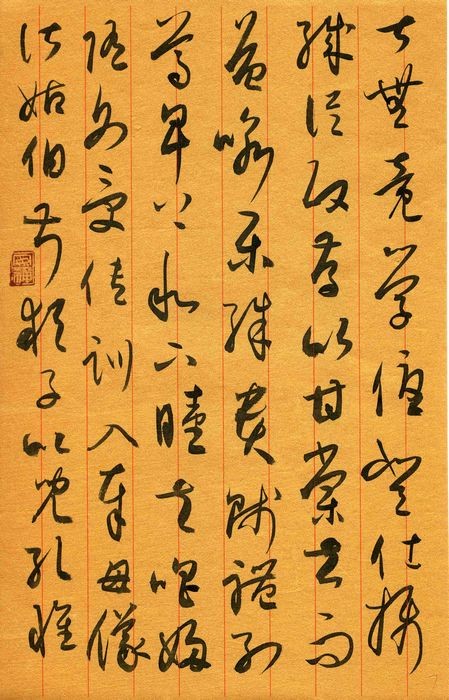 甚無竟學優登仕攝
職從政存以甘棠去而
益詠樂殊貴賤禮別
尊卑上和下睦夫唱婦
隨外受傅訓入奉母儀
諸姑伯叔猶子比兒孔懷